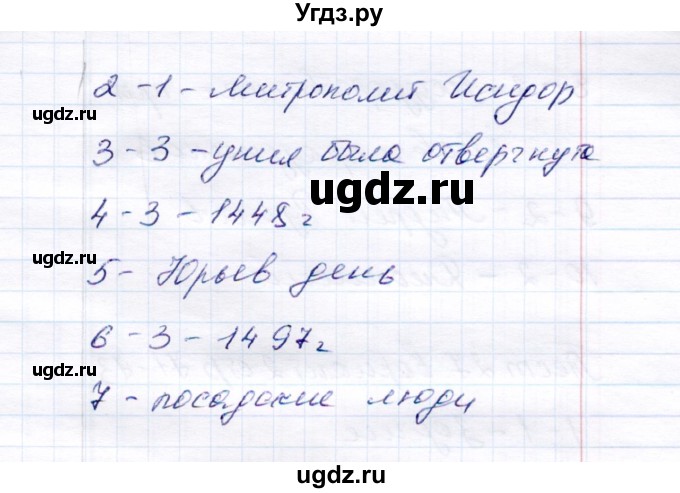 Угдз.ру
2 - 1 - Митрополит Исидор
ugdz.ru
ugdz.ru
3 - 3 - уния была отвергнута
ugdz.ru
4 - 3 - 1448 г
ugdz.ru
5 - Юрьев день
6 - 3 - 1497 г
ugdz.ru
ugdz.ru
7 - посадские люди
ugdz.ru